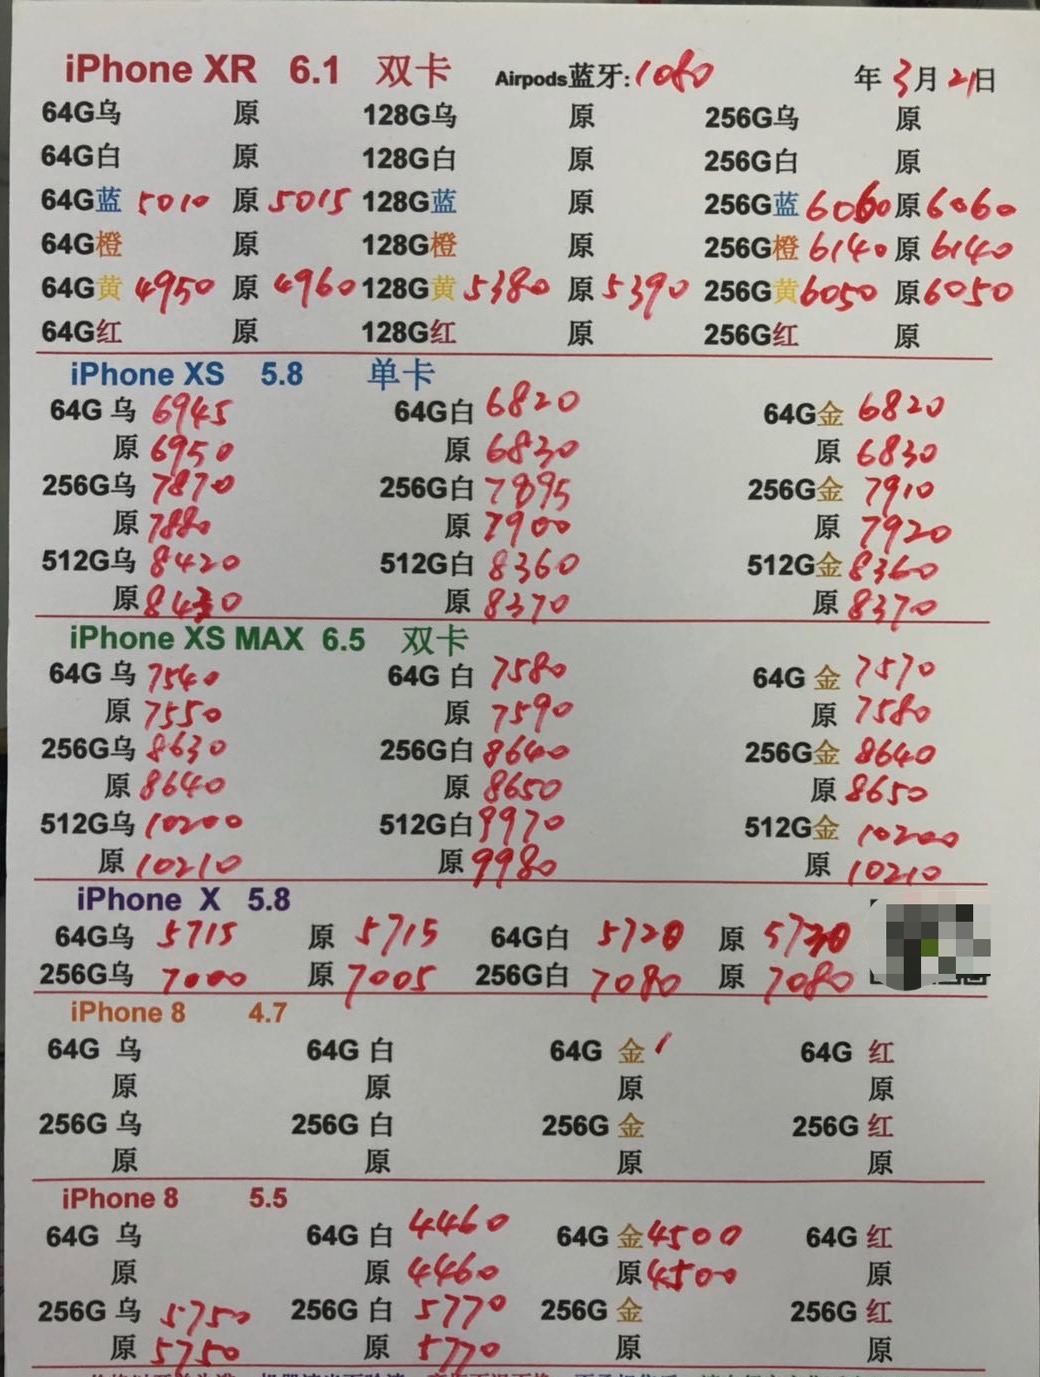 iPhone XR 6.1 双卡 Airpods蓝牙:1080 年3月21日
64G乌 原 128G乌 原 256G乌 原
64G白 原 128G白 原 256G白 原
64G蓝 5010 原 5015 128G蓝 原 256G蓝 6060 原 6060
64G橙 原 128G橙 原 256G橙 6140 原 6140
64G黄 4950 原 4960 128G黄 5380 原 5390 256G黄 6050 原 6050
64G红 原 128G红 原 256G红 原
iPhone XS 5.8 单卡
64G 乌 6945 64G白 6820 64G金 6820
原 6950 原 6830 原 6830
256G乌 7870 256G白 7895 256G金 7910
原 7880 原 7900 原 7920
512G乌 8420 512G白 8360 512G金 8360
原 8430 原 8370 原 8370
iPhone XS MAX 6.5 双卡
64G 乌 7540 64G 白 7580 64G 金 7570
原 7550 原 7590 原 7580
256G乌 8630 256G白 8640 256G金 8640
原 8640 原 8650 原 8650
512G乌 10200 512G白 9970 512G金 10200
原 10210 原 9980 原 10210
iPhone X 5.8
64G乌 5715 原 5715 64G白 5720 原 5730
256G乌 7000 原 7005 256G白 7080 原 7080
iPhone 8 4.7
64G 乌 64G 白 64G 金 64G 红
原 原 原 原
256G 乌 256G 白 256G 金 256G 红
原 原 原 原
iPhone 8 5.5
64G 乌 64G 白 4460 64G 金 4500 64G 红
原 原 4460 原 4500 原
256G 乌 5750 256G 白 5770 256G 金 256G 红
原 5750 原 5770 原 原